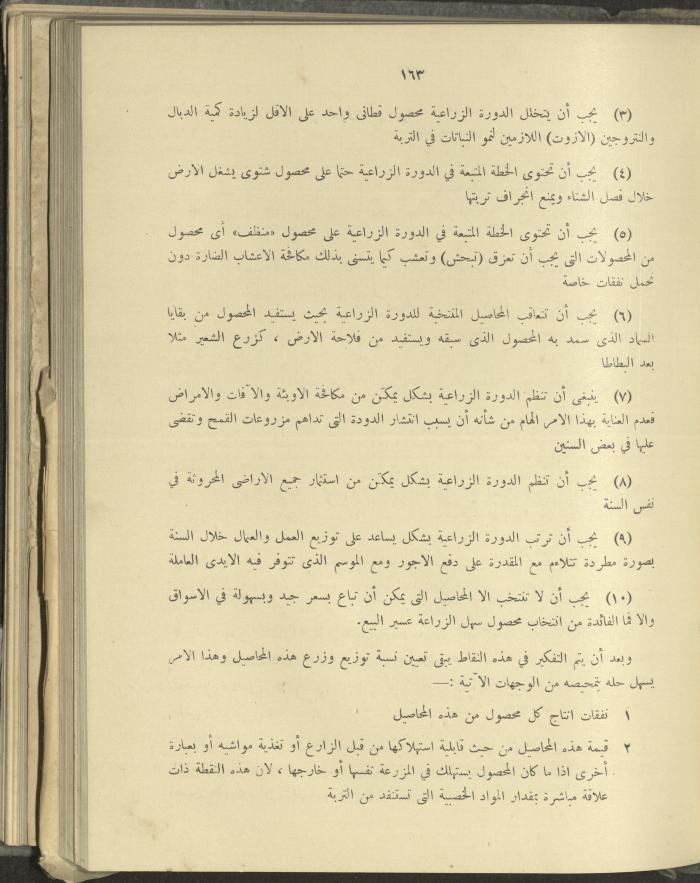 ١٦٣
(٣) يجب أن يتخلل الدورة الزراعية محصول قطانى واحد على الاقل لزيادة كمية الدبال
والنتروجين (الازوت) اللازمين لنمو النباتات في التربة
(٤) يجب أن تحتوى الخطة المتبعة في الدورة الزراعية حتما على محصول شتوى يشغل الارض
خلال فصل الشتاء ويمنع انجراف تربتها
(٥) يجب أن تحتوى الخطة المتبعة في الدورة الزراعية على محصول «منظف» أى محصول
من المحصولات التى يجب أن تعزق (تبحش) وتعشب كيما يتسنى بذلك مكافحة الاعشاب الضارة دون
تحمل نفقات خاصة
(٦) يجب أن تتعاقب المحاصيل المنتخبة للدورة الزراعية بحيث يستفيد المحصول من بقايا
السماد الذى سمد به المحصول الذى سبقه ويستفيد من فلاحة الارض ، كزرع الشعير مثلا
بعد البطاطا
(٧) ينبغى أن تنظم الدورة الزراعية بشكل يمكّن من مكافحة الاوبئة والآفات والامراض
فعدم العناية بهذا الامر الهام من شأنه أن يسبب انتشار الدودة التى تداهم مزروعات القمح وتقضى
عليها في بعض السنين
(٨) يجب أن تنظم الدورة الزراعية بشكل يمكّن من استثمار جميع الاراضى المحروثة في
نفس السنة
(٩) يجب أن ترتب الدورة الزراعية بشكل يساعد على توزيع العمل والعمال خلال السنة
بصورة مطردة تتلاءم مع المقدرة على دفع الاجور ومع الموسم الذى تتوفر فيه الايدى العاملة
(١٠) يجب أن لا تنتخب الا المحاصيل التى يمكن أن تباع بسعر جيد وبسهولة في الاسواق
والا فما الفائدة من انتخاب محصول سهل الزراعة عسير البيع.
وبعد أن يتم التفكير في هذه النقاط يبقى تعيين نسبة توزيع وزرع هذه المحاصيل وهذا الامر
يسهل حله بتمحيصه من الوجهات الآتية :—
١ نفقات انتاج كل محصول من هذه المحاصيل
٢ قيمة هذه المحاصيل من حيث قابلية استهلاكها من قبل الزارع أو تغذية مواشيه أو بعبارة
أخرى اذا ما كان المحصول يستهلك في المزرعة نفسها أو خارجها ، لان هذه النقطة ذات
علاقة مباشرة بمقدار المواد الخصبية التى تستنفد من التربة